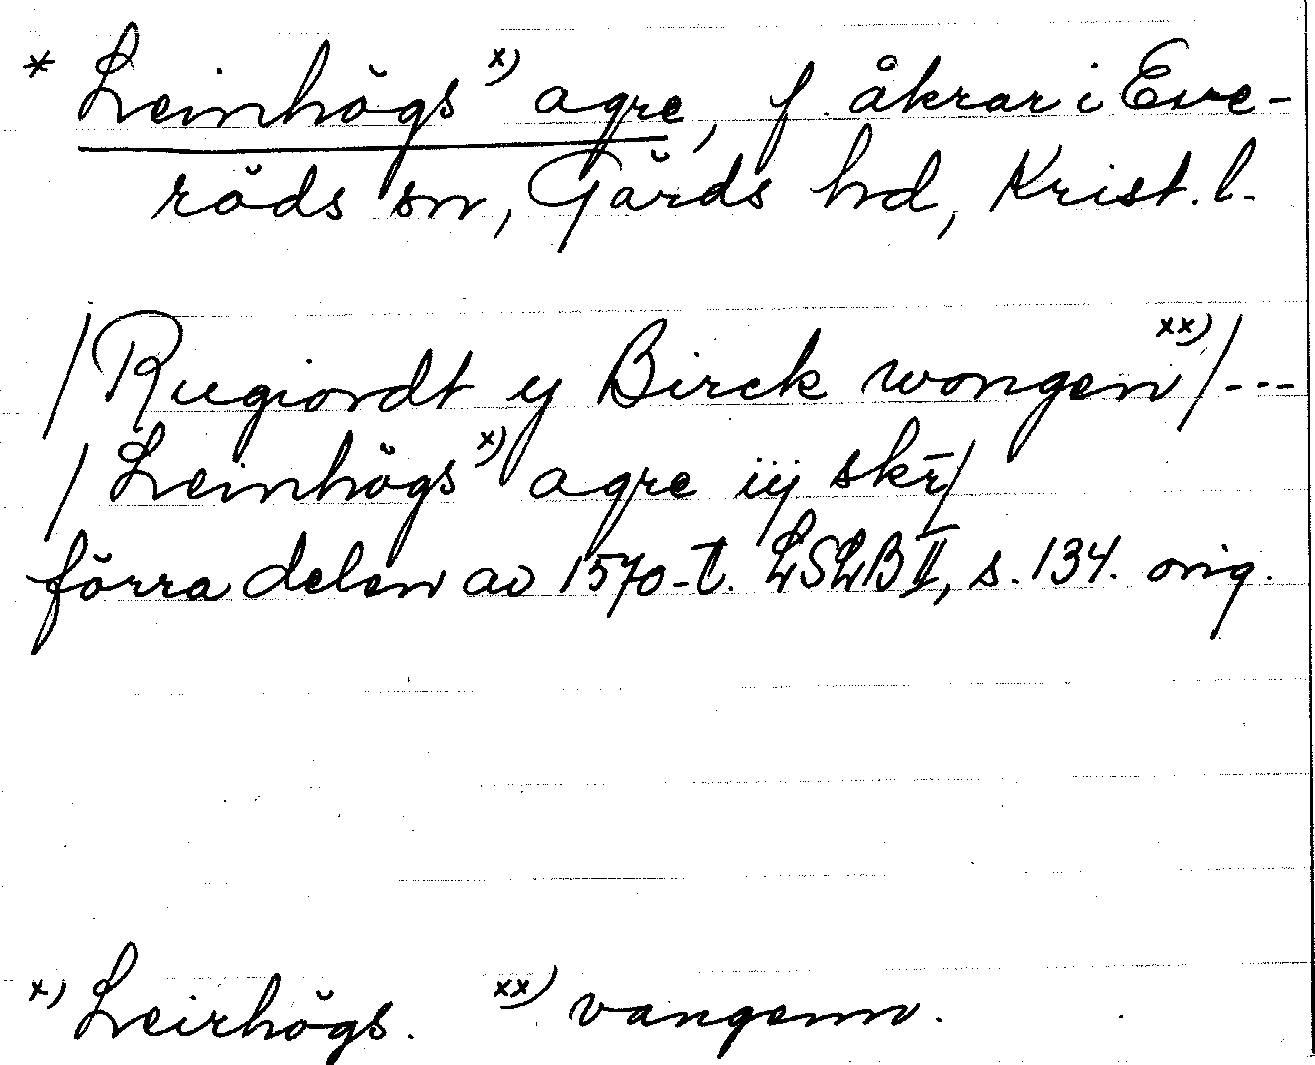 * Leinhögs x) agre, f. åkrar i Eve-
röds sn, Gärds hd, Krist. l.
/Rugiordt y Birck wongen xx)/---
/Leinhögs x) agre iij skr̄/
förra delen av 1570-t. LSLB II, s. 134. orig.
x) Leirhögs. xx) vangenn.